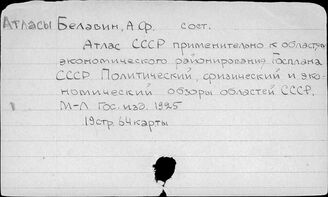 Атласы Белавин, А.Ф. сост.
Атлас СССР применительно к областям
экономического районирования Госплана
СССР Политический, физический и эко-
номический обзоры областей СССР.
М-Л Гос. изд. 1925
19 стр. 64 карты